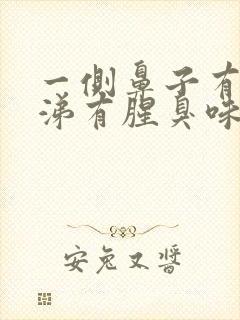 一侧鼻子有
涕有腥臭味
安兔又酱